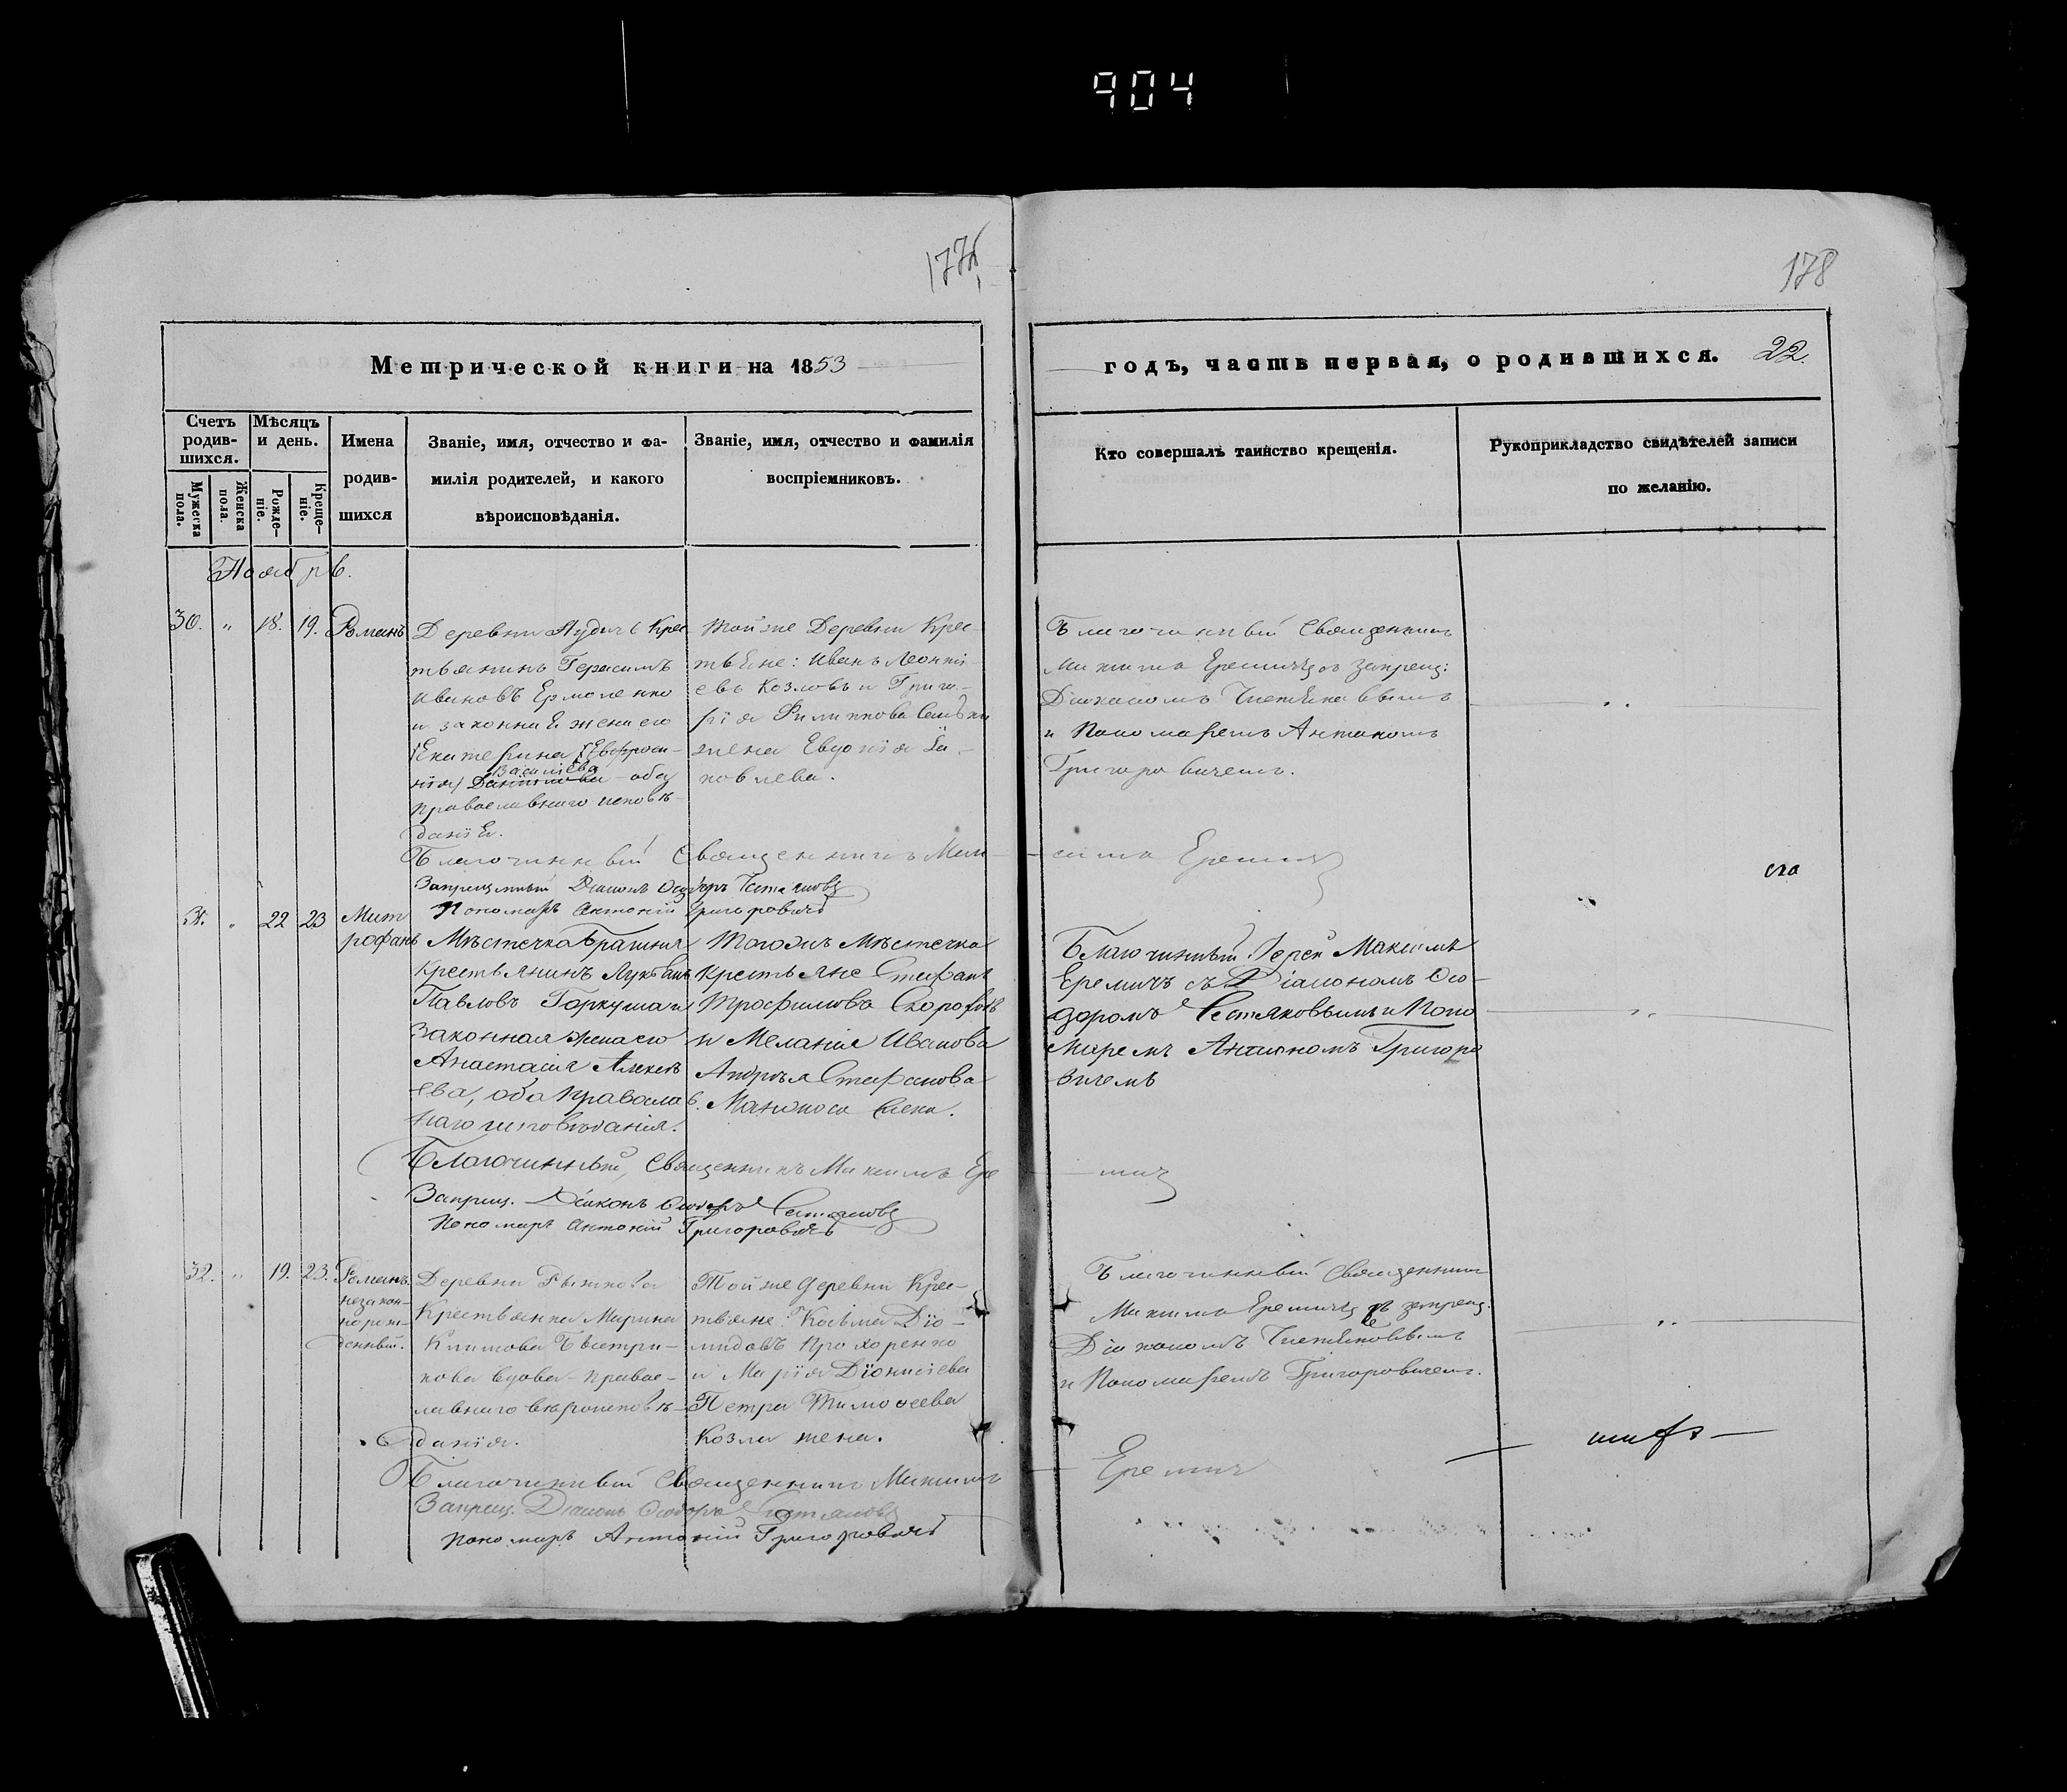 904
177
178
Метрической книги на 1853
годъ, часть первая, о родившихся. 22.
Счетъ родив-
шихся.
Мѣсяцъ
и день.
Мужеска
пола.
Женска
пола.
Рожде-
ніе.
Креще-
ніе.
Имена
родив-
шихся
Званіе, имя, отчество и фа-
милія родителей, и какого
вѣроисповѣданія.
Званіе, имя, отчество и фамилія
воспріемниковъ.
Кто совершалъ таинство крещенія.
Рукоприкладство свидѣтелей записи
по желанію.
Ноябрь.
30. " 18. 19. Романъ
Деревни Лудичъ Крес
тьянинъ Герасимъ
Ивановъ Ермоленко
и законная жена его
Екатерина
Василіева
оба
православнаго исповѣ-
данія.
Той же Деревни Крес-
тьяне: Иванъ Леонті-
евъ Козловъ и Григо-
рія Филиппова
жена Евдокія Іа-
ковлева.
Благочинный Священникъ
Максимъ Еремичъ съ запрещ:
Діакономъ
и Пономаремъ Антономъ
Григоровичемъ.
Благочинный Священникъ Мак-
симъ Еремичъ
Запрещенный Діаконъ Ѳеодоръ
Пономарь Антоній Григоровичъ
31. " 22 23 Мит
рофанъ
Мѣстечка Брагиня
Крестьянинъ Лукьянъ
Павловъ Горкуша и
Законная жена его
Анастасія Алексѣ
ева, оба Православ.
наго исповѣданія.
Того жъ Мѣстечка
Крестьяне Стефанъ
Трофимовъ
и Меланія Иванова
Андрея Стефанова
жена.
Благочинный Іерей Максимъ
Еремичъ съ Діакономъ Ѳео-
доромъ и Поно
маремъ Антономъ Григоро
вичемъ
Благочинный, Священникъ Максимъ Ере
мичъ
Запрещ. Діаконъ Ѳеодоръ
Пономарь Антоній Григоровичъ
32. " 19. 23. Романъ.
незакон-
норож-
денный.
Деревни Рыжкова
Крестьянка Марина
Климова
вдова - право-
славнаго вѣроисповѣ-
данія.
Той же деревни Крес-
тьяне: Косьма Діо-
мидовъ Прохоренко
и Марія Діонисіева
Петра Тимоѳеева
Козла жена.
Благочинный Священникъ
Максимъ Еремичъ съ запрещ.
Діакономъ
и Пономаремъ Григоровичемъ.
Благочинный Священникъ Максимъ
Еремичъ
Запрещ. Діаконъ Ѳеодоръ
Пономарь Антоній Григоровичъ